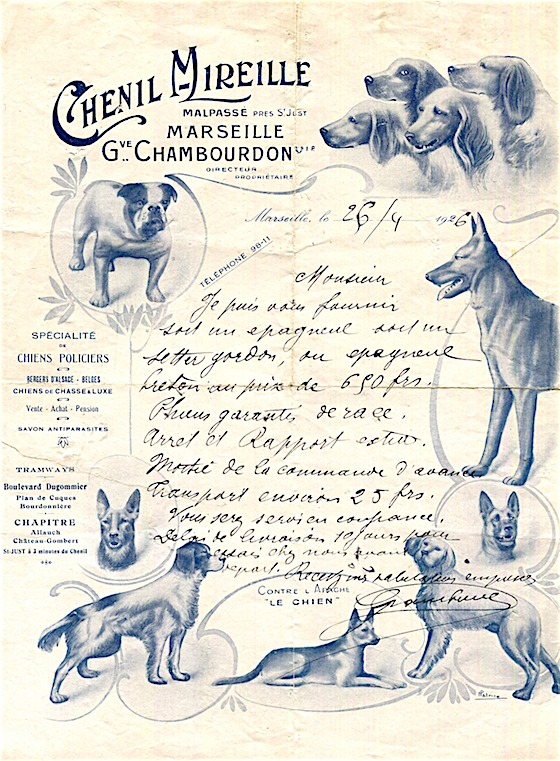 CHENIL MIREILLE
MALPASSÉ PRÈS St JUST
MARSEILLE
Gve CHAMBOURDON
DIRECTEUR
PROPRIÉTAIRE
Marseille, le 26/4 1926
TÉLÉPHONE 98-11
Monsieur
Je puis vous fournir
soit un epagneul soit un
setter gordon, ou epagneul
breton au prix de 650 frs.
Chiens garantis de race.
Arret et Rapport
Moitié de la commande d'avance
Transport environ 25 frs.
Vous serez servi en confiance.
Delai de livraison 10 jours pour
essais chez nous avant
depart. salutations
SPÉCIALITÉ
DE
CHIENS POLICIERS
BERGERS D'ALSACE - BELGES
CHIENS DE CHASSE & LUXE
Vente - Achat - Pension
SAVON ANTIPARASITES
TRAMWAYS
Boulevard Dugommier
Plan de Cuques
Bourdonnière
CHAPITRE
Allauch
Château-Gombert
St-JUST à 3 minutes du Chenil
CONTRE L'APACHE
"LE CHIEN"